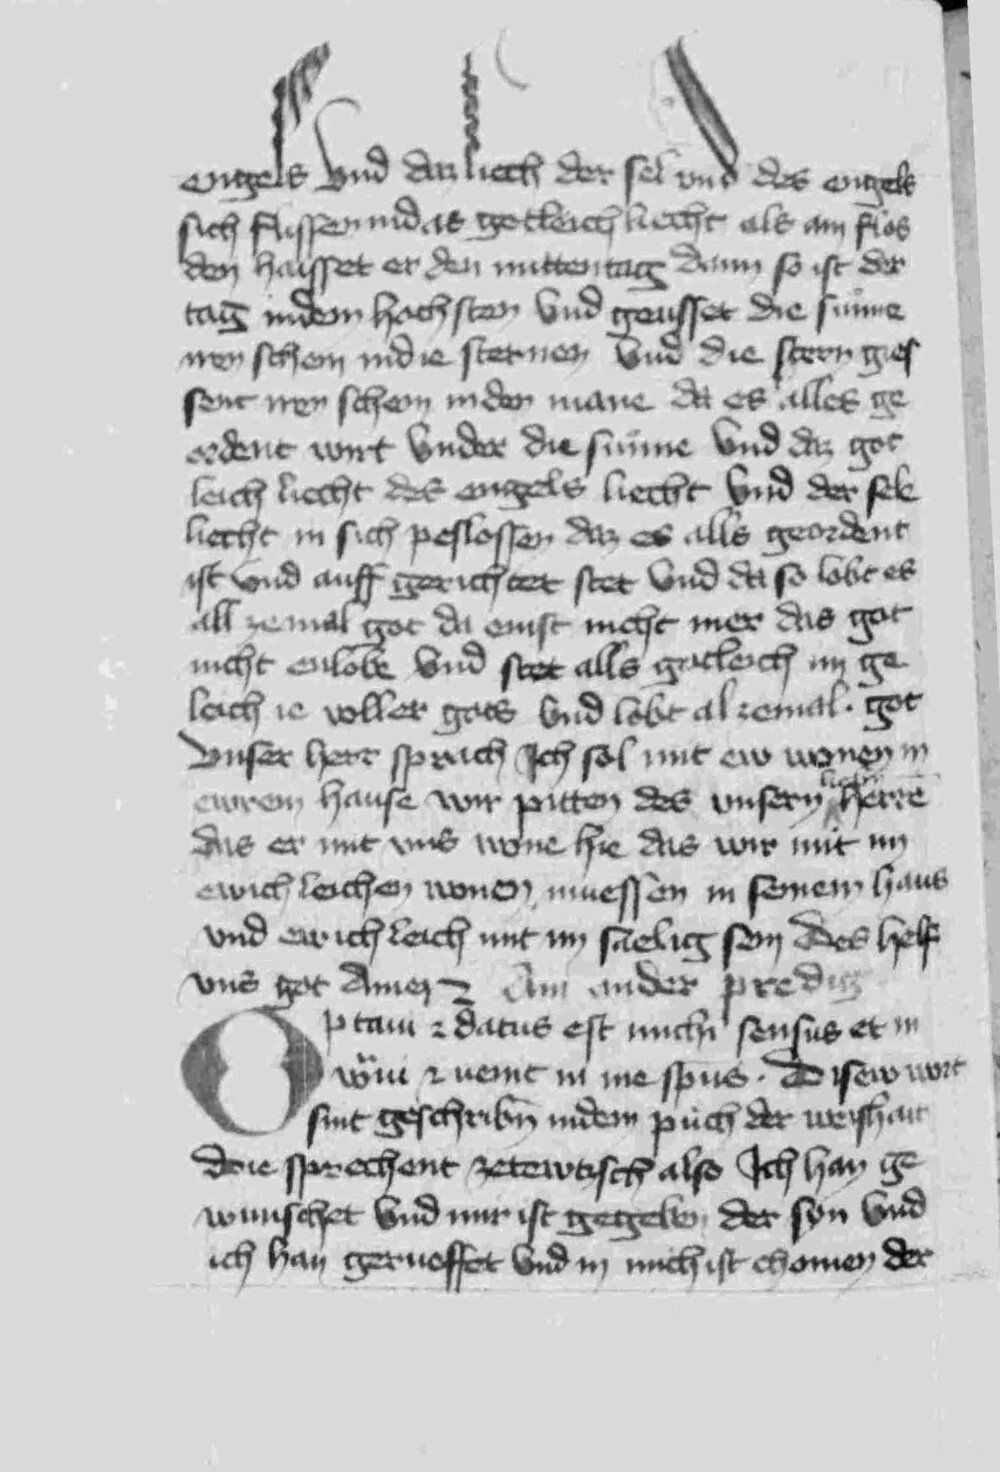 engels vnd daz liech der sel vnd des engels
sich flissen in das gotleich liecht als am flos
den haisset er den mittentag dann so ist der
tag in dem hochsten vnd geusset die sunne
iren schein in die sternen vnd die stern gies
sent iren schein in den mane da es alles ge
ordent wirt vnder die sunne vnd daz got
leich liecht des engels liecht vnd der sele
liecht in sich peslossen daz es alls geordent
ist vnd auff gerichtet stet vnd da so lobt es
all zemal got da enist nicht mer das got
nicht enlobe vnd stet alls gotleich in ge
leich ie voller gots vnd lobt al zemal. got
vnser herr sprach Ich sol mit ew wonen in
ewrem hause wir pitten des vnsern lieben herre
das er mit vns wone hie das wir mit im
ewichleichen wonen muessen in seinem haus
vnd ewichleich mit im saelig sein Des helf
vns got Amen Ain ander predig
Optaui ⁊ datus est michi sensus et in
uocaui ⁊ uenit in me spūs. Disew wort
sint geschribn̄ in dem puch der weishait
die sprechent zetewtsch also Ich han ge
wunschet vnd mir ist gegeben der syn vnd
ich han geruoffet vnd in mich ist chomen der